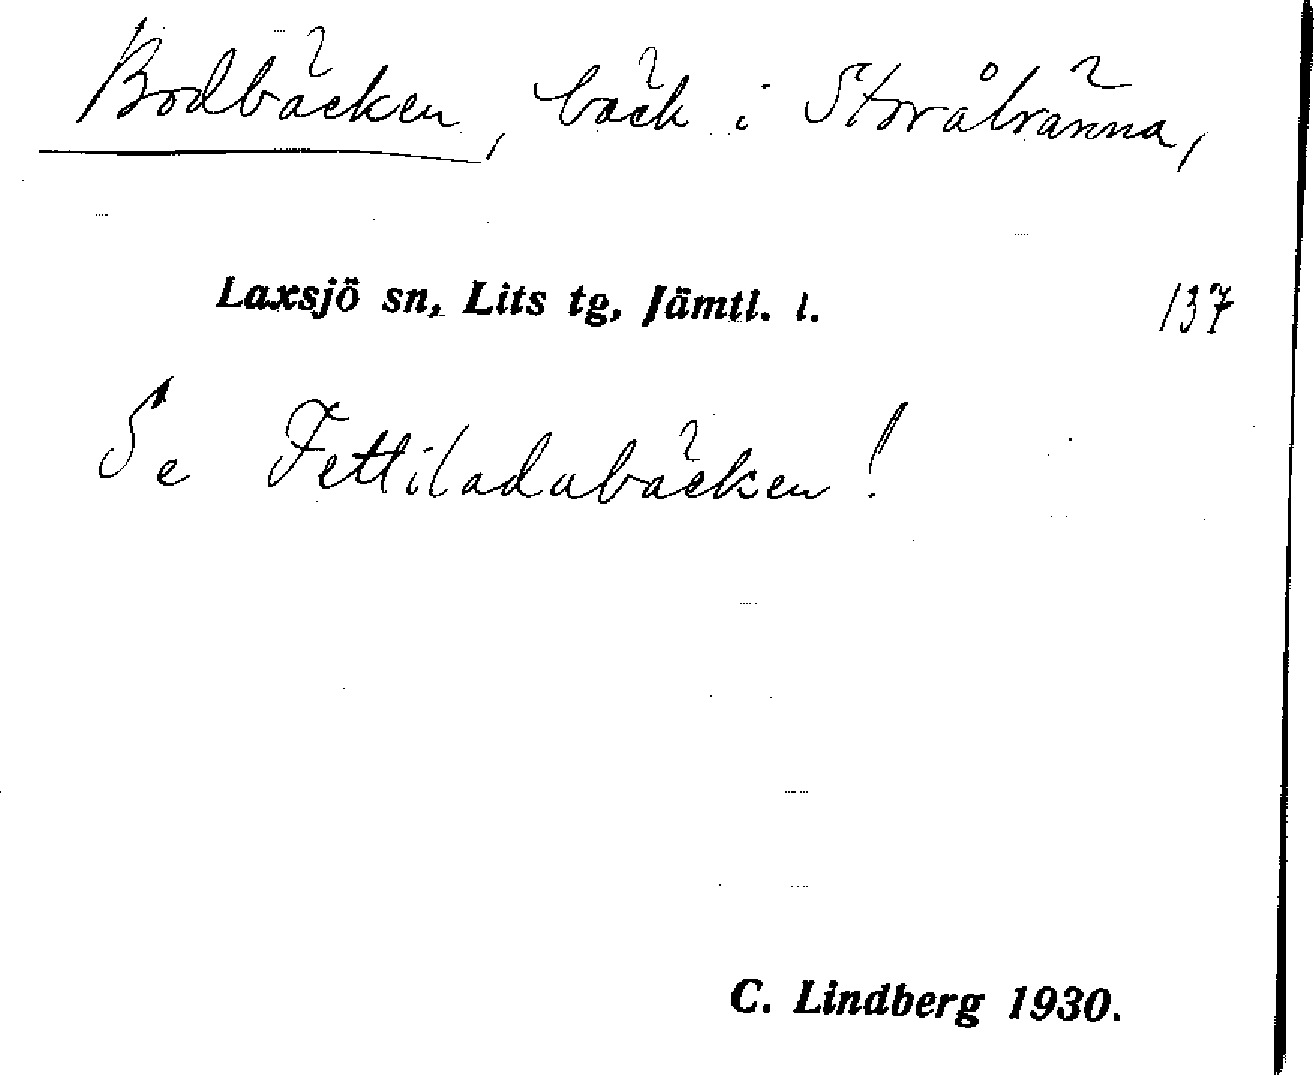 Bodbäcken, bäck i Storåbränna,
Laxsjö sn, Lits tg, Jämtl. l. 137
Se Fettiladabäcken!
C. Lindberg 1930.